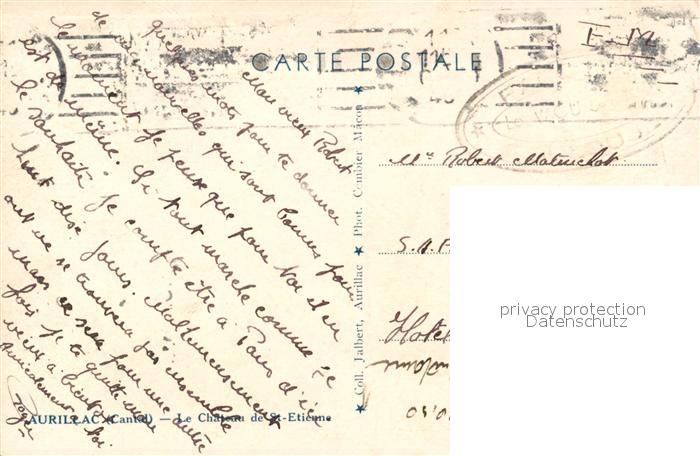 CARTE POSTALE
F.M
Mon vieux Robert
Quelques mots pour te donner
de mes nouvelles qui sont bonnes pour
le moment. Je pense que pour toi il en
est de même. Si tout marche comme je
le souhaite je compte être à Paris d'ici
huit dix jours. Malheureusement
on ne se trouvera pas ensemble
mais ce sera pour une autre
fois. Je te quitte mon
vieux à bientôt
Amicalement
Roger
AURILLAC (Cantal) — Le Château de St-Etienne
★ Coll. Jalbert, Aurillac ★ Phot. Combier Mâcon ★
Mr Robert
S.A.P
Hotel
privacy protection
Datenschutz